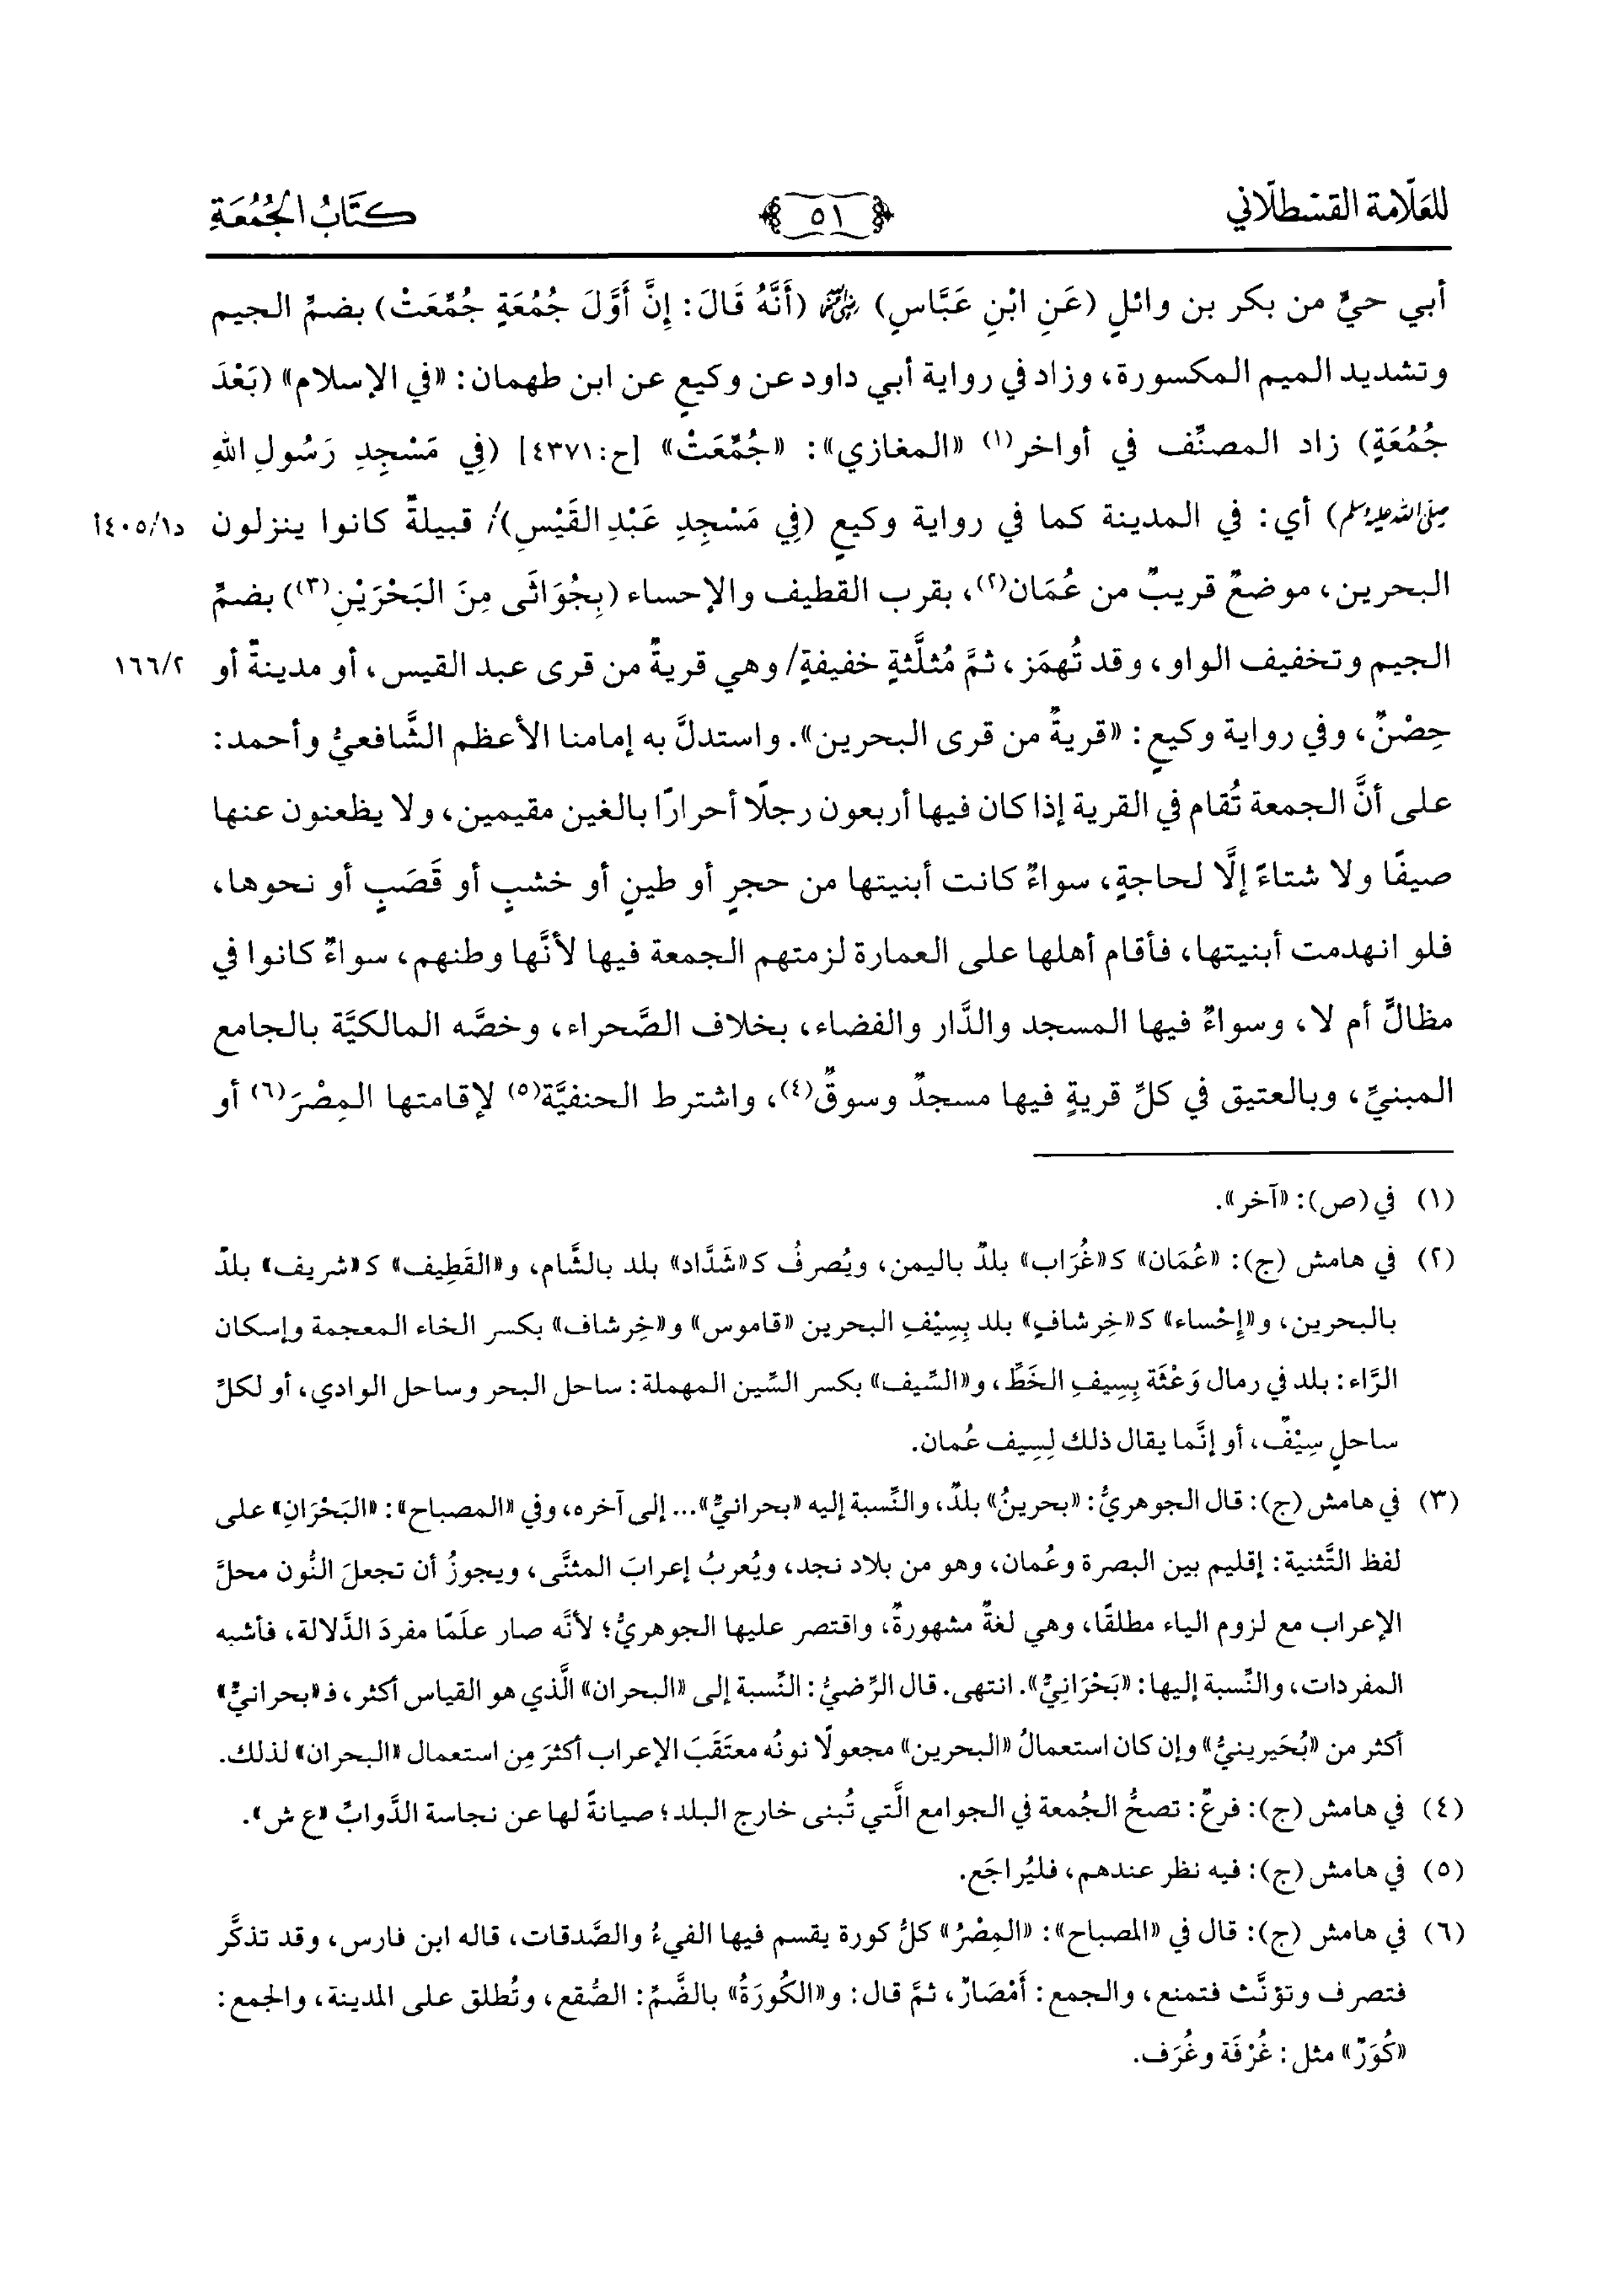 للعلّامة القسْطلّاني
٥١
كتَابُ الجُمُعَةِ
أبي حيٍّ من بكر بن وائلٍ (عَنِ ابْنِ عَبَّاسٍ) ﵄ (أَنَّهُ قَالَ: إِنَّ أَوَّلَ جُمُعَةٍ جُمِّعَتْ) بضمِّ الجيم
وتشديد الميم المكسورة، وزاد في رواية أبي داود عن وكيعٍ عن ابن طهمان: «في الإسلام» (بَعْدَ
جُمُعَةٍ) زاد المصنِّف في أواخر(١) «المغازي»: «جُمِّعَتْ» [ح:٤٣٧١] (فِي مَسْجِدِ رَسُولِ اللهِ
ﷺ) أي: في المدينة كما في رواية وكيعٍ (فِي مَسْجِدِ عَبْدِ القَيْسِ)/ قبيلةٌ كانوا ينزلون
د٤٠٥/١أ
البحرين، موضعٌ قريبٌ من عُمَان(٢)، بقرب القطيف والإحساء (بِجُوَاثَى مِنَ البَحْرَيْنِ(٣)) بضمِّ
الجيم وتخفيف الواو، وقد تُهمَز، ثمَّ مُثلَّثةٍ خفيفةٍ/ وهي قريةٌ من قرى عبد القيس، أو مدينةٌ أو
١٦٦/٢
حِصْنٌ، وفي رواية وكيعٍ: «قريةٌ من قرى البحرين». واستدلَّ به إمامنا الأعظم الشَّافعيُّ وأحمد:
على أنَّ الجمعة تُقام في القرية إذا كان فيها أربعون رجلًا أحرارًا بالغين مقيمين، ولا يظعنون عنها
صيفًا ولا شتاءً إلَّا لحاجةٍ، سواءٌ كانت أبنيتها من حجرٍ أو طينٍ أو خشبٍ أو قَصَبٍ أو نحوها،
فلو انهدمت أبنيتها، فأقام أهلها على العمارة لزمتهم الجمعة فيها لأنَّها وطنهم، سواءٌ كانوا في
مظالَّ أم لا، وسواءٌ فيها المسجد والدَّار والفضاء، بخلاف الصَّحراء، وخصَّه المالكيَّة بالجامع
المبنيِّ، وبالعتيق في كلِّ قريةٍ فيها مسجدٌ وسوقٌ(٤)، واشترط الحنفيَّة(٥) لإقامتها المِصْرَ(٦) أو
(١) في (ص): «آخر».
(٢) في هامش (ج): «عُمَان» كـ«غُرَاب» بلدٌ باليمن، ويُصرفُ كـ«شَدَّاد» بلد بالشَّام، و«القَطِيف» كـ«شريف» بلدٌ
بالبحرين، و«إِحْساء» كـ«خِرشافٍ» بلد بِسِيْفِ البحرين «قاموس» و«خِرشاف» بكسر الخاء المعجمة وإسكان
الرَّاء: بلد في رمال وَعْثَة بِسِيفِ الخَطِّ، و«السِّيف» بكسر السِّين المهملة: ساحل البحر وساحل الوادي، أو لكلِّ
ساحلٍ سِيْفٌ، أو إنَّما يقال ذلك لِسِيف عُمان.
(٣) في هامش (ج): قال الجوهريُّ: «بحرينُ» بلدٌ، والنِّسبة إليه «بحرانيٌّ»... إلى آخره، وفي «المصباح»: «البَحْرَانِ» على
لفظ التَّثنية: إقليم بين البصرة وعُمان، وهو من بلاد نجد، ويُعربُ إعرابَ المثنَّى، ويجوزُ أن تجعلَ النُّون محلَّ
الإعراب مع لزوم الياء مطلقًا، وهي لغةٌ مشهورةٌ، واقتصر عليها الجوهريُّ؛ لأنَّه صار علَمًا مفردَ الدَّلالة، فأشبه
المفردات، والنِّسبة إليها: «بَحْرَانِيٌّ». انتهى. قال الرِّضيُّ: النِّسبة إلى «البحران» الَّذي هو القياس أكثر، فـ«بحرانيٌّ»
أكثر من «بُحَيرينيُّ» وإن كان استعمالُ «البحرين» مجعولًا نونُه معتَقَبَ الإعراب أكثرَ مِن استعمال «البحران» لذلك.
(٤) في هامش (ج): فرعٌ: تصحُّ الجُمعة في الجوامع الَّتي تُبنى خارج البلد؛ صيانةً لها عن نجاسة الدَّوابِّ «ع ش».
(٥) في هامش (ج): فيه نظر عندهم، فليُراجَع.
(٦) في هامش (ج): قال في «المصباح»: «المِصْرُ» كلُّ كورة يقسم فيها الفيءُ والصَّدقات، قاله ابن فارس، وقد تذكَّر
فتصرف وتؤنَّث فتمنع، والجمع: أَمْصَارٌ، ثمَّ قال: و«الكُورَةُ» بالضَّمِّ: الصُّقع، وتُطلق على المدينة، والجمع:
«كُوَرٌ» مثل: غُرْفَة وغُرَف.